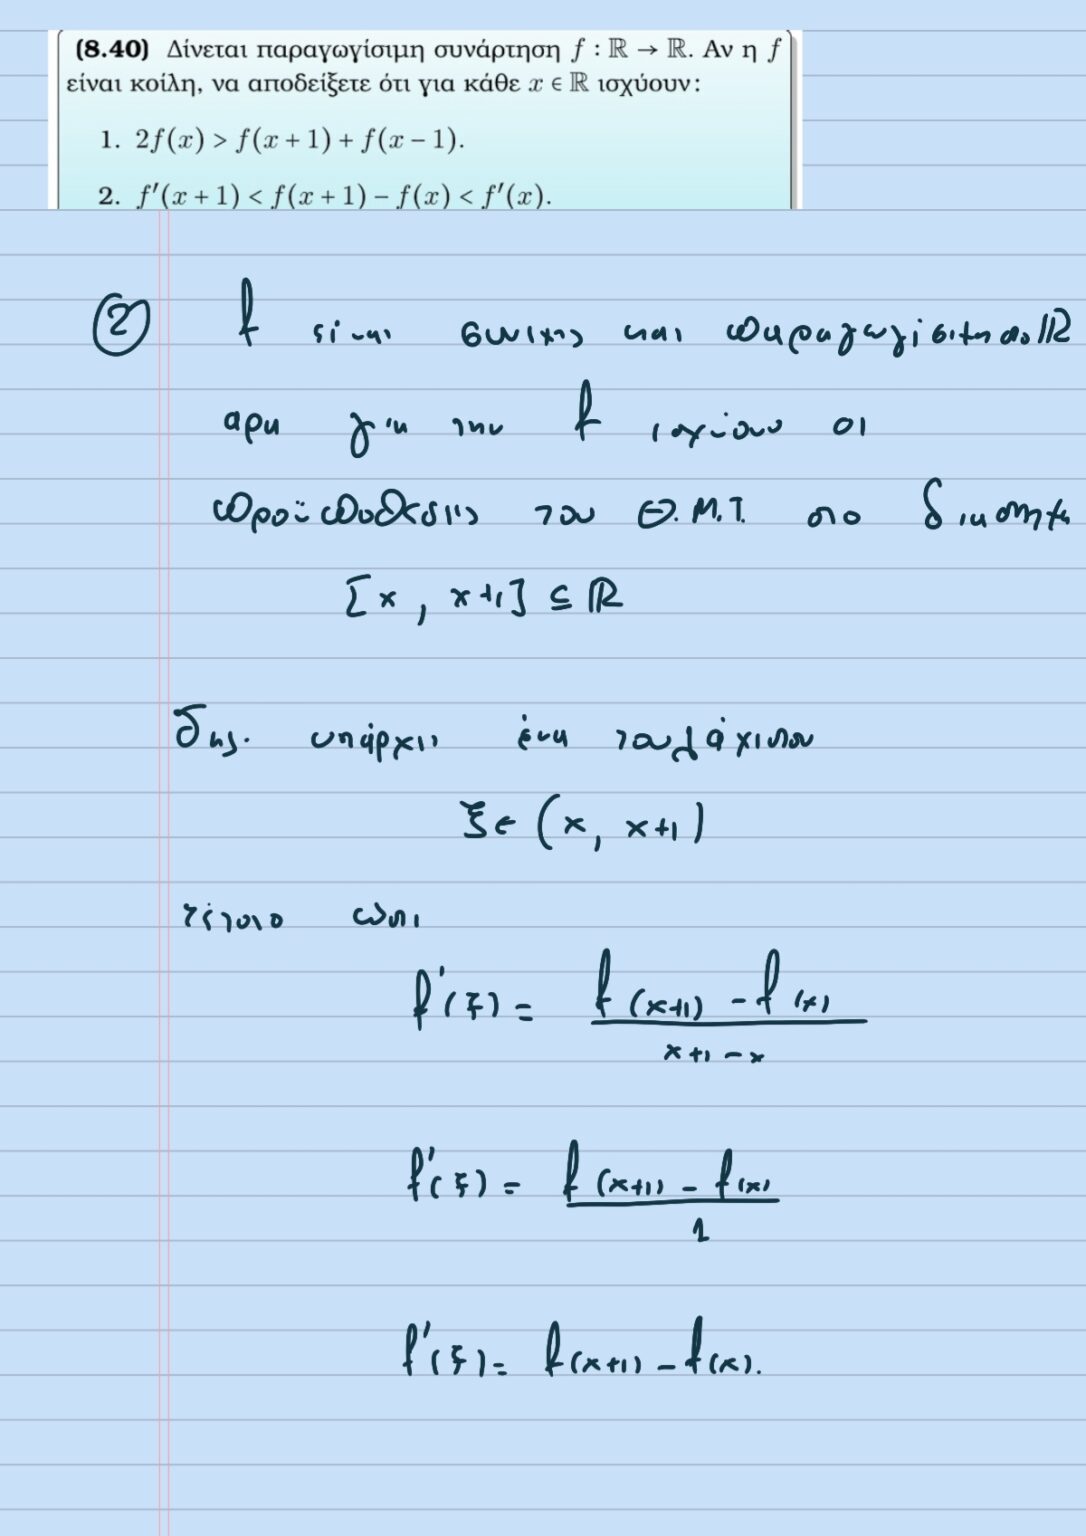 (8.40) Δίνεται παραγωγίσιμη συνάρτηση f : ℝ → ℝ. Αν η f
είναι κοίλη, να αποδείξετε ότι για κάθε x ∈ ℝ ισχύουν:
1. 2f(x) > f(x + 1) + f(x − 1).
2. f′(x + 1) < f(x + 1) − f(x) < f′(x).
② f είναι συνεχης και παραγωγίσιμη στο ℝ
αρα για την f ισχύουν οι
προϋποθεσεις του Θ.Μ.Τ. στο διαστημα
[x, x+1] ⊆ ℝ
δηλ. υπάρχει ένα τουλάχιστον
ξ ∈ (x, x+1)
τέτοιο ώστε
f′(ξ) = f(x+1) − f(x)
x+1−x
f′(ξ) = f(x+1) − f(x)
1
f′(ξ) = f(x+1) − f(x).